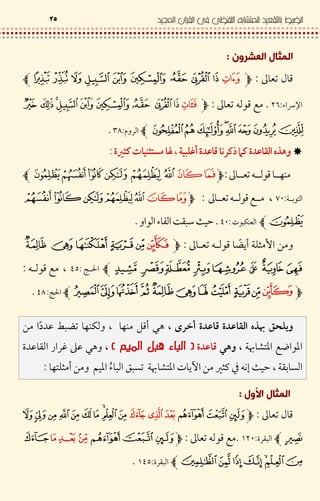 الضبط بالتقعيد للمتشابه اللفظي في القرآن المجيد ٢٥
المثال العشرون :
قال تعالى : ﴿ وَءَاتِ ذَا الْقُرْبَىٰ حَقَّهُ وَالْمِسْكِينَ وَابْنَ السَّبِيلِ وَلَا تُبَذِّرْ تَبْذِيرًا ﴾
الإسراء:٢٦ . مع قوله تعالى : ﴿ فَـَٔاتِ ذَا الْقُرْبَىٰ حَقَّهُ وَالْمِسْكِينَ وَابْنَ السَّبِيلِ ذَٰلِكَ خَيْرٌ
لِّلَّذِينَ يُرِيدُونَ وَجْهَ اللَّهِ وَأُولَٰئِكَ هُمُ الْمُفْلِحُونَ ﴾ الروم:٣٨ .
✸ وهذه القاعدة كما ذكرنا قاعدة أغلبية ، لها مستثنيات كثيرة :
منهـا قولـه تعـالى :﴿ فَمَا كَانَ اللَّهُ لِيَظْلِمَهُمْ وَلَٰكِن كَانُوا أَنفُسَهُمْ يَظْلِمُونَ ﴾
التوبة:٧٠ ، مـع قولـه تعـالى : ﴿ وَمَا كَانَ اللَّهُ لِيَظْلِمَهُمْ وَلَٰكِن كَانُوا أَنفُسَهُمْ
يَظْلِمُونَ ﴾ العنكبوت:٤٠ . حيث سبقت الفاء الواو .
ومن الأمثلة أيضًا قولـه تعـالى : ﴿ فَكَأَيِّن مِّن قَرْيَةٍ أَهْلَكْنَاهَا وَهِيَ ظَالِمَةٌ
فَهِيَ خَاوِيَةٌ عَلَىٰ عُرُوشِهَا وَبِئْرٍ مُّعَطَّلَةٍ وَقَصْرٍ مَّشِيدٍ ﴾ الحج:٤٥ ، مع قولـه :
﴿ وَكَأَيِّن مِّن قَرْيَةٍ أَمْلَيْتُ لَهَا وَهِيَ ظَالِمَةٌ ثُمَّ أَخَذْتُهَا وَإِلَيَّ الْمَصِيرُ ﴾ الحج:٤٨ .
ويلحق بهذه القاعدة قاعدة أخرى ، هي أقل منها ، ولكنها تضبط عددًا من
المواضع المتشابهة ، وهي قاعدة ( الباء قبل الميم ) ، وهي على غرار القاعدة
السابقة ، حيث إنه في كثير من الآيات المتشابهة تسبق الباءُ الميم ومن أمثلتها :
المثال الأول :
قال تعالى : ﴿ وَلَئِنِ اتَّبَعْتَ أَهْوَاءَهُم بَعْدَ الَّذِي جَاءَكَ مِنَ الْعِلْمِ مَا لَكَ مِنَ اللَّهِ مِن وَلِيٍّ وَلَا
نَصِيرٍ ﴾ البقرة:١٢٠ .مع قوله تعالى : ﴿ وَلَئِنِ اتَّبَعْتَ أَهْوَاءَهُم مِّن بَعْدِ مَا جَاءَكَ
مِنَ الْعِلْمِ إِنَّكَ إِذًا لَّمِنَ الظَّالِمِينَ ﴾ البقرة:١٤٥ .